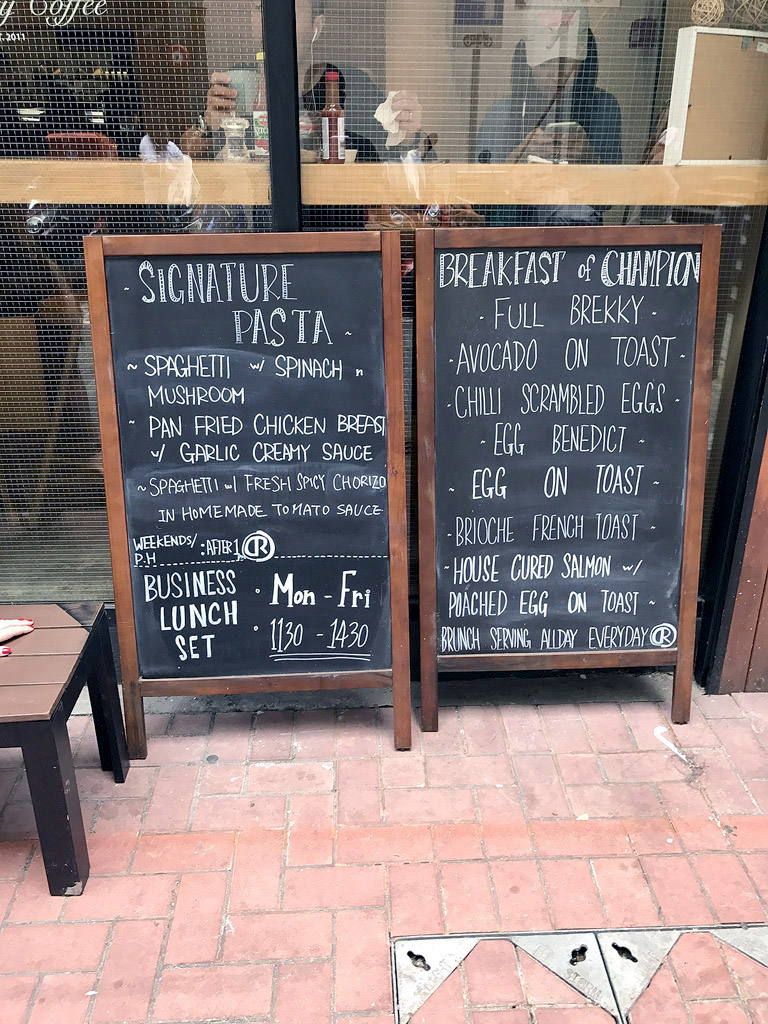 y Coffee
T. 2011
~ SIGNATURE
PASTA ~
~ SPAGHETTI w/ SPINACH n
MUSHROOM
~ PAN FRIED CHICKEN BREAST
w/ GARLIC CREAMY SAUCE
~ SPAGHETTI w/ FRESH SPICY CHORIZO
IN HOMEMADE TOMATO SAUCE
WEEKENDS/
P.H : AFTER 1 CR
BUSINESS
LUNCH
SET
• Mon - Fri
• 1130 - 1430
BREAKFAST of CHAMPION
- FULL BREKKY -
- AVOCADO ON TOAST -
- CHILLI SCRAMBLED EGGS -
- EGG BENEDICT -
~ EGG ON TOAST ~
- BRIOCHE FRENCH TOAST ~
- HOUSE CURED SALMON w/
POACHED EGG ON TOAST ~
BRUNCH SERVING ALLDAY EVERYDAY CR